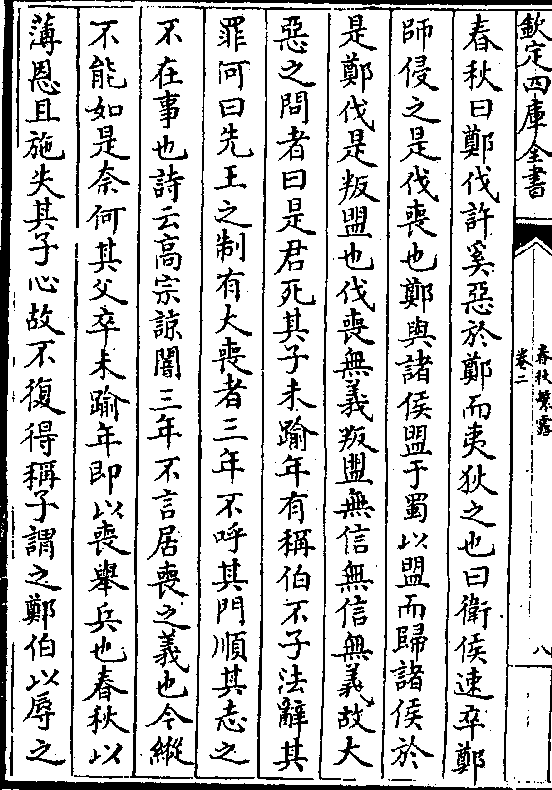 欽定四庫全書
春秋繁露
卷二
八
春秋曰鄭伐許奚惡於鄭而夷狄之也曰衛侯速卒鄭
師侵之是伐喪也鄭與諸侯盟于蜀以盟而歸諸侯於
是鄭伐是叛盟也伐喪無義叛盟無信無信無義故大
惡之問者曰是君死其子未踰年有稱伯不子法辭其
罪何曰先王之制有大喪者三年不呼其門順其志之
不在事也詩云高宗諒闇三年不言居喪之義也今縱
不能如是奈何其父卒未踰年即以喪舉兵也春秋以
薄恩且施失其子心故不復得稱子謂之鄭伯以辱之